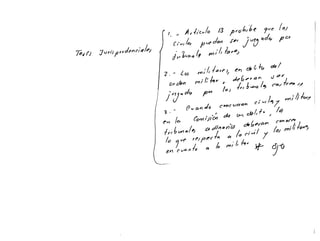 Tesis Jurisprudenciales
1.- Artículo 13 prohibe que los
civiles puedan ser juzgados por
tribunales militares
2.- Los militares, en delito del
orden militar, deberan ser
juzgados por los tribunales castrenses
3.- Cuando concurran civiles y militares
en la comisión de un delito, los
tribunales ordinarios deberan conocer
lo que respecta a lo civil y los militares
en cuanto a lo militar